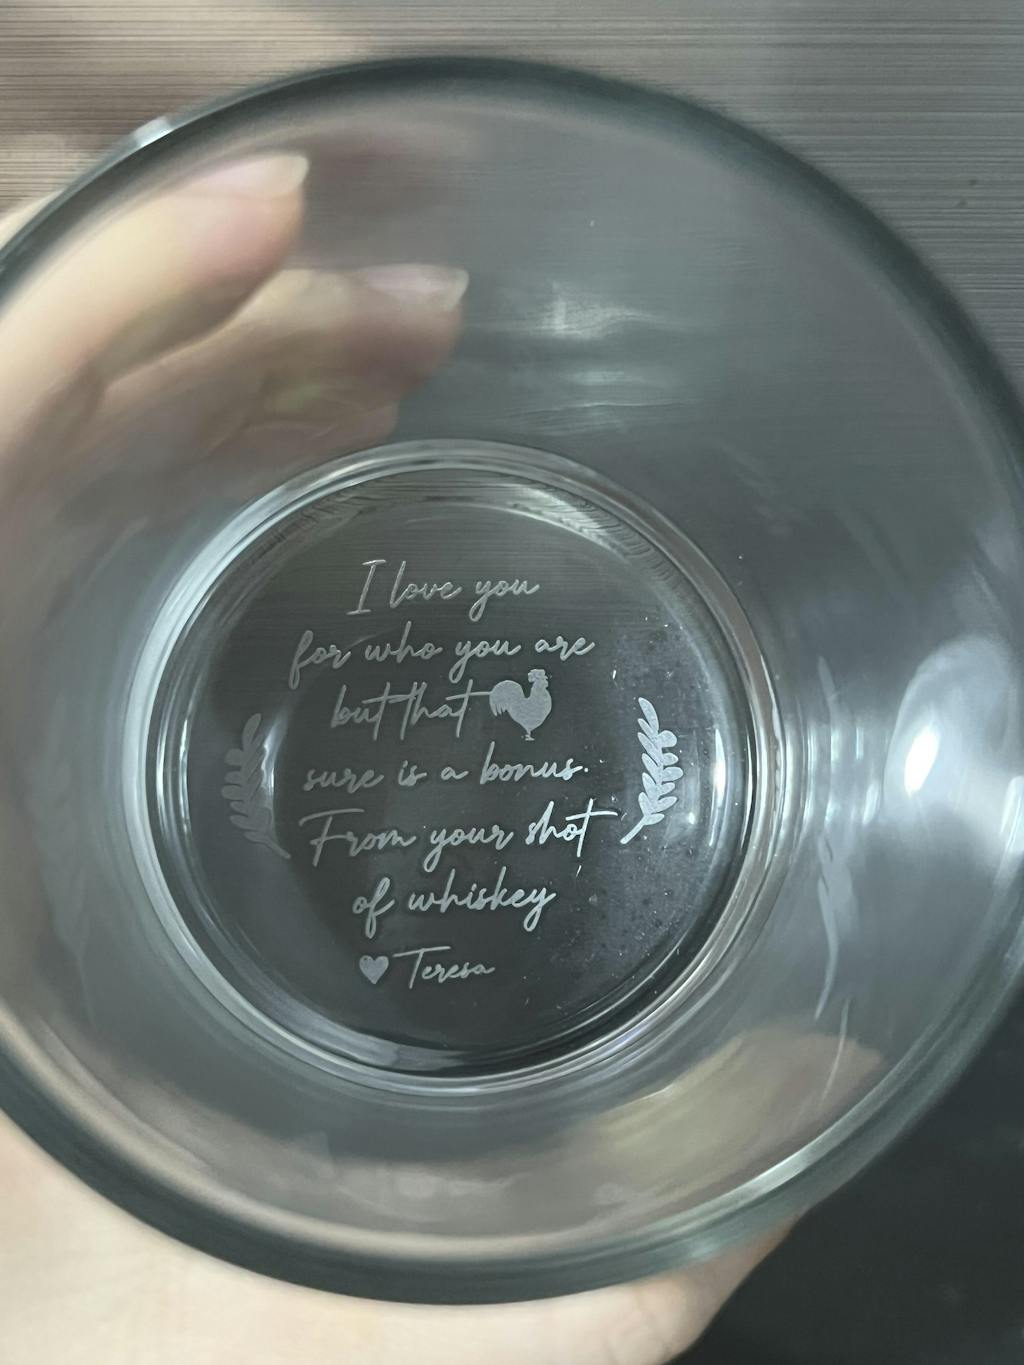 I love you
for who you are
but that
sure is a bonus.
From your shot
of whiskey
Teresa